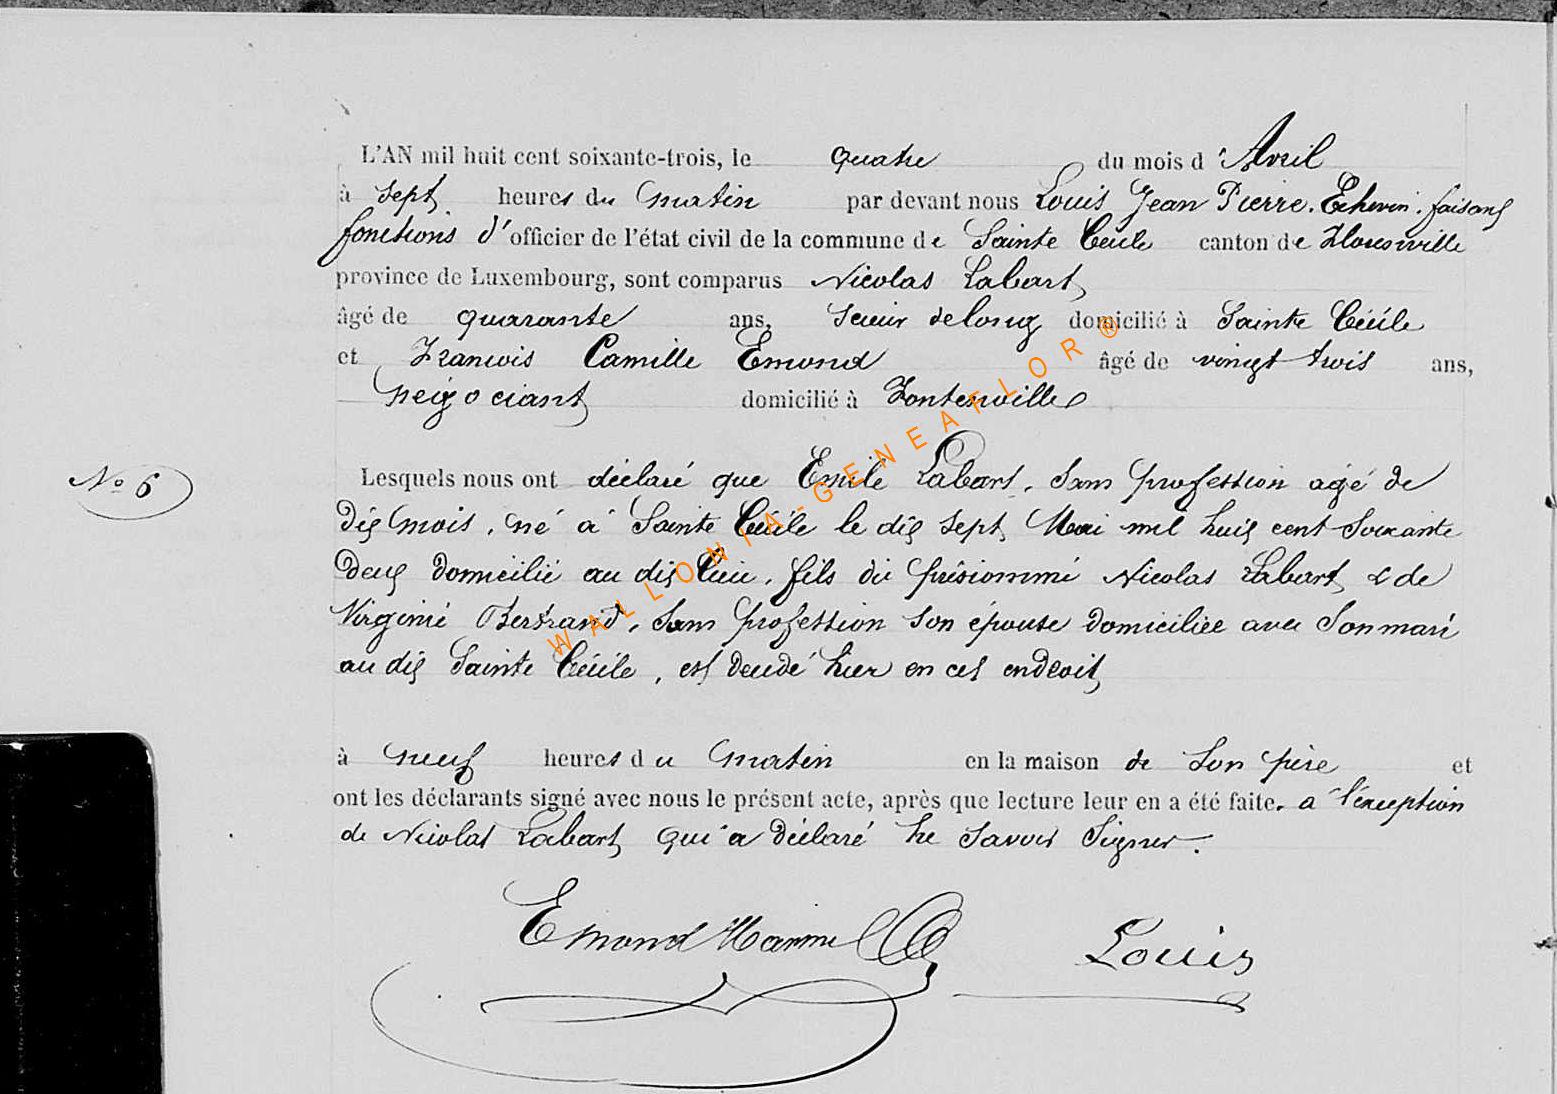 L'AN mil huit cent soixante-trois, le quatre du mois d'Avril
à sept heures du matin par devant nous Louis Jean Pierre, Echevin, faisant
fonctions d'officier de l'état civil de la commune de Sainte Cécile canton de Florenville
province de Luxembourg, sont comparus Nicolas Labart
âgé de quarante ans, scieur de long domicilié à Sainte Cécile
et François Camille Emond âgé de vingt trois ans,
négociant domicilié à Fontenoille
Lesquels nous ont déclaré que Emile Labart, sans profession agé de
N° 6
dix mois, né à Sainte Cécile le dix sept Mai mil huit cent soixante
deux domicilié au dit lieu, fils du présiommé Nicolas Labart & de
Virginie Bertrand, sans profession son épouse domiciliée avec son mari
au dit Sainte Cécile, est decedé hier en cet endroit
à neuf heures du matin en la maison de son père et
ont les déclarants signé avec nous le présent acte, après que lecture leur en a été faite. a l'exception
de Nicolas Labart qui a déclaré ne savoir signer.
Emond Louis
WALLONIA-GENEAFLOR®